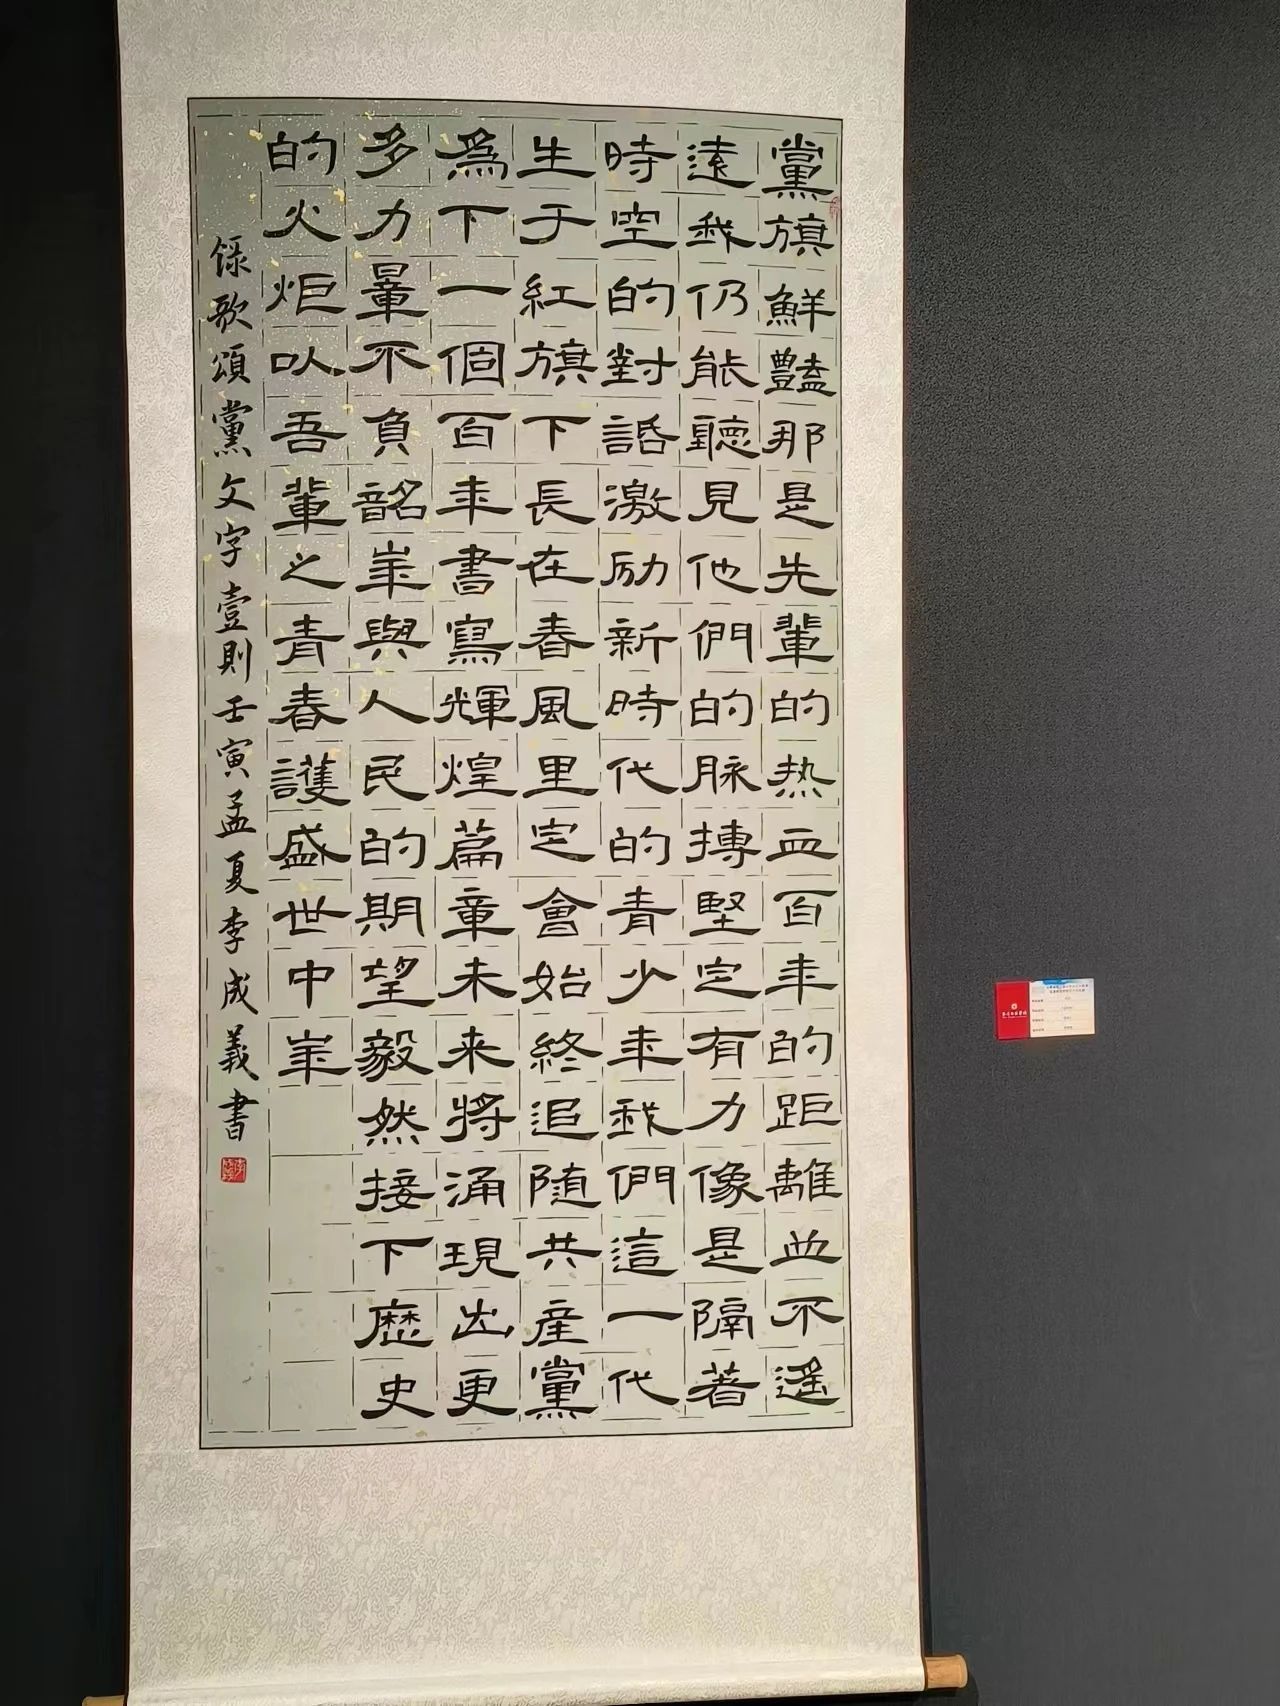 黨旗鮮豔那是先輩的热血百年的距離並不遥
遠我仍能聽見他們的脉搏堅定有力像是隔著
時空的對話激励新時代的青少年我們這一代
生于紅旗下長在春風里定會始終追随共産黨
爲下一個百年書寫輝煌篇章未来將涌現出更
多力量不負韶華與人民的期望毅然接下歷史
的火炬以吾輩之青春護盛世中華
録歌頌黨文字壹則壬寅孟夏李成義書